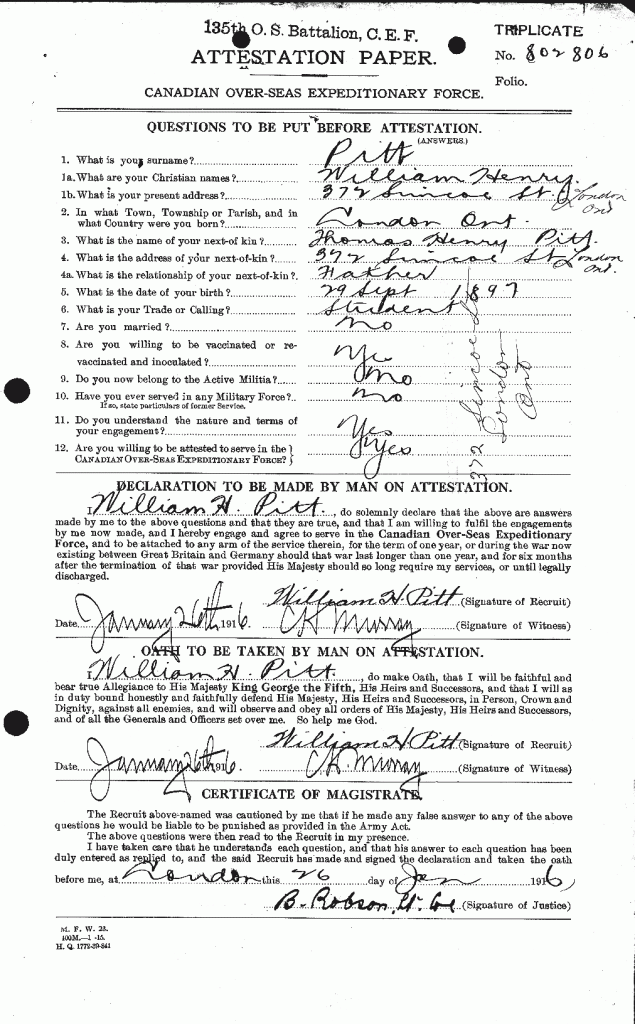 135th O. S. Battalion, C. E. F.
TRIPLICATE
ATTESTATION PAPER.
No. 802806
Folio.
CANADIAN OVER-SEAS EXPEDITIONARY FORCE.
QUESTIONS TO BE PUT BEFORE ATTESTATION.
(ANSWERS.)
1. What is your surname? Pitt
1a. What are your Christian names? William Henry
1b. What is your present address? 372 Simcoe St. London Ont
2. In what Town, Township or Parish, and in
what Country were you born? London Ont.
3. What is the name of your next-of kin? Thomas Henry Pitt.
4. What is the address of your next-of-kin? 372 Simcoe St London Ont.
4a. What is the relationship of your next-of-kin? Father
5. What is the date of your birth? 29 Sept 1897
6. What is your Trade or Calling? Student
7. Are you married? No
8. Are you willing to be vaccinated or re-
vaccinated and inoculated? Yes
9. Do you now belong to the Active Militia? No
10. Have you ever served in any Military Force? No
If so, state particulars of former Service.
11. Do you understand the nature and terms of
your engagement? Yes
12. Are you willing to be attested to serve in the
CANADIAN OVER-SEAS EXPEDITIONARY FORCE? Yes
372 Simcoe St
London
Ont
DECLARATION TO BE MADE BY MAN ON ATTESTATION.
I, William H. Pitt, do solemnly declare that the above are answers
made by me to the above questions and that they are true, and that I am willing to fulfil the engagements
by me now made, and I hereby engage and agree to serve in the Canadian Over-Seas Expeditionary
Force, and to be attached to any arm of the service therein, for the term of one year, or during the war now
existing between Great Britain and Germany should that war last longer than one year, and for six months
after the termination of that war provided His Majesty should so long require my services, or until legally
discharged.
William H. Pitt (Signature of Recruit)
Date January 26th 1916. C H Murray (Signature of Witness)
OATH TO BE TAKEN BY MAN ON ATTESTATION.
I, William H. Pitt, do make Oath, that I will be faithful and
bear true Allegiance to His Majesty King George the Fifth, His Heirs and Successors, and that I will as
in duty bound honestly and faithfully defend His Majesty, His Heirs and Successors, in Person, Crown and
Dignity, against all enemies, and will observe and obey all orders of His Majesty, His Heirs and Successors,
and of all the Generals and Officers set over me. So help me God.
William H. Pitt (Signature of Recruit)
Date January 26th 1916. C H. Murray (Signature of Witness)
CERTIFICATE OF MAGISTRATE.
The Recruit above-named was cautioned by me that if he made any false answer to any of the above
questions he would be liable to be punished as provided in the Army Act.
The above questions were then read to the Recruit in my presence.
I have taken care that he understands each question, and that his answer to each question has been
duly entered as replied to, and the said Recruit has made and signed the declaration and taken the oath
before me, at London this 26 day of Jan 1916
B. Robson, Lt. Col (Signature of Justice)
M. F. W. 23.
400M.—1 -15.
H. Q. 1772-39-841